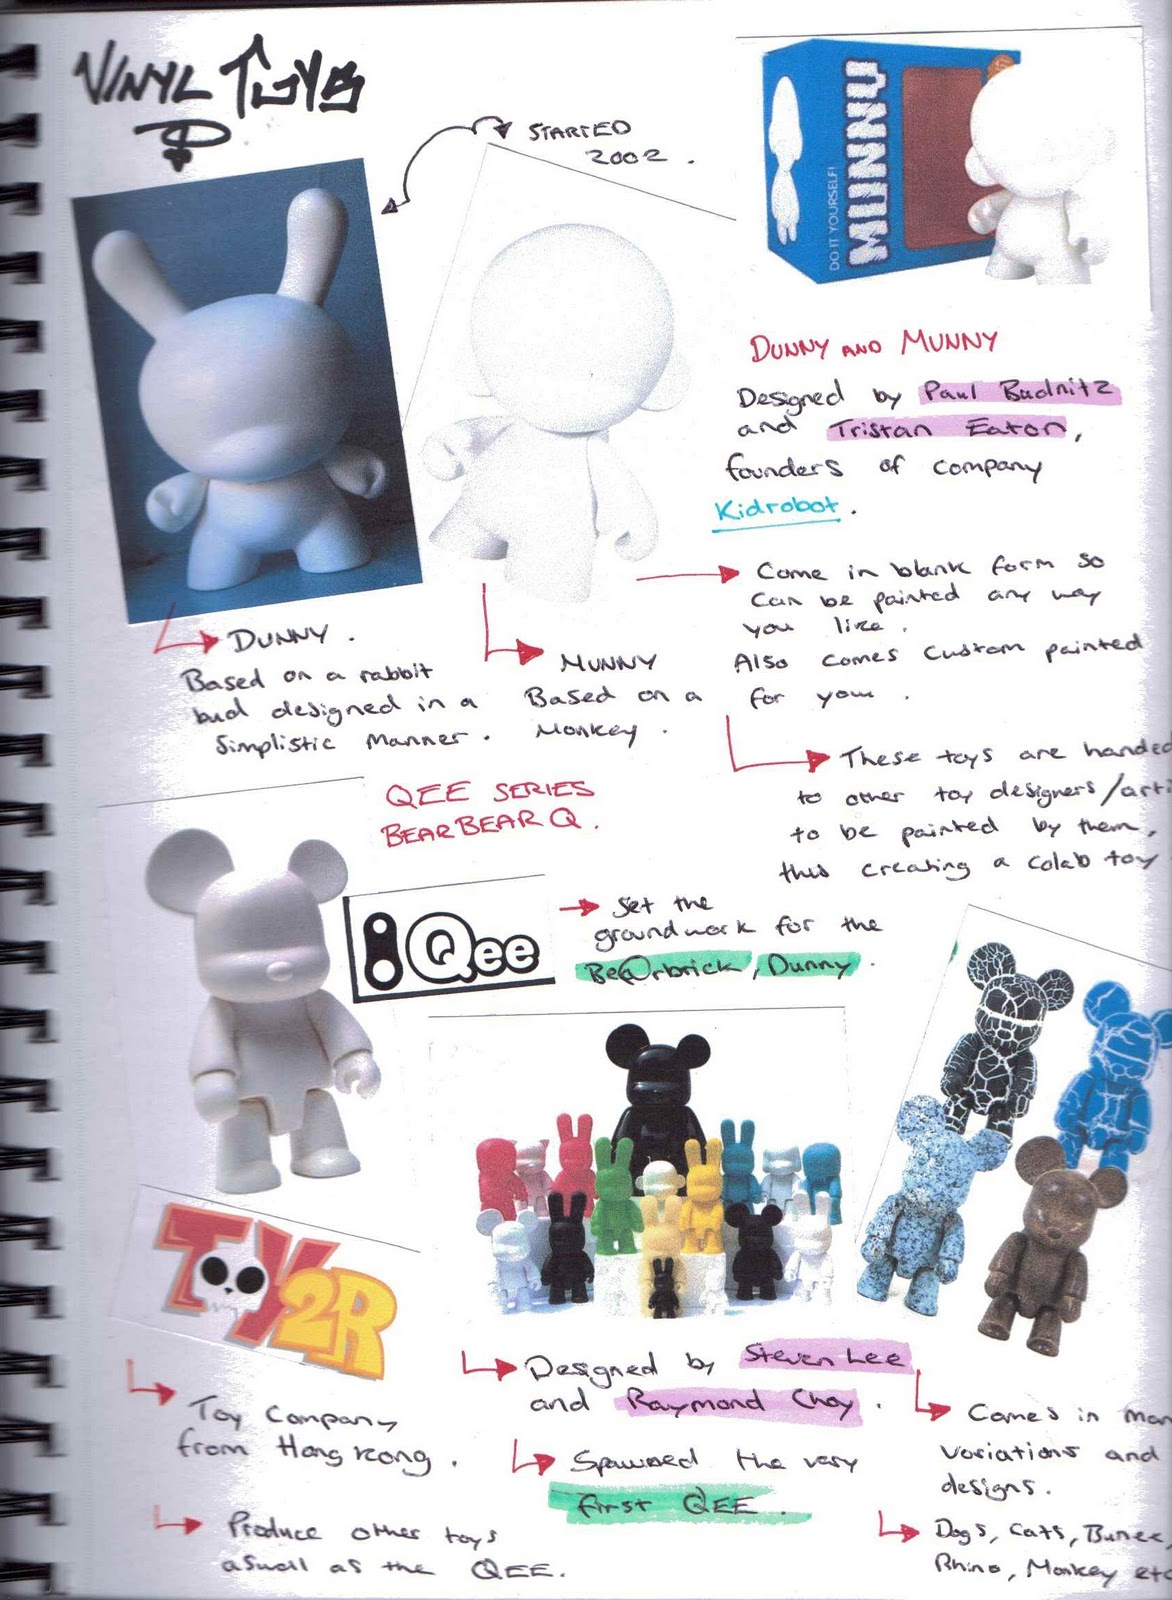 VINYL TOYS
STARTED
2002.
DO IT YOURSELF!
MUNNY
DUNNY AND MUNNY
Designed by Paul Budnitz
and Tristan Eaton,
founders of company
Kidrobot.
Come in blank form so
can be painted any way
you like.
Also comes custom painted
for you.
DUNNY.
Based on a rabbit
but designed in a
Simplistic Manner.
MUNNY
Based on a
Monkey.
These toys are handed
to other toy designers/arti
to be painted by them,
thus creating a colab toy
QEE SERIES
BEARBEAR Q.
Qee
Set the
groundwork for the
Be@rbrick, Dunny.
TOY2R
Toy Company
from Hong Kong.
Produce other toys
aswell as the QEE.
Designed by Steven Lee
and Raymond Choy.
Spawned the very
first QEE.
Comes in man
variations and
designs.
Dogs, Cats, Bunee,
Rhino, Monkey etc